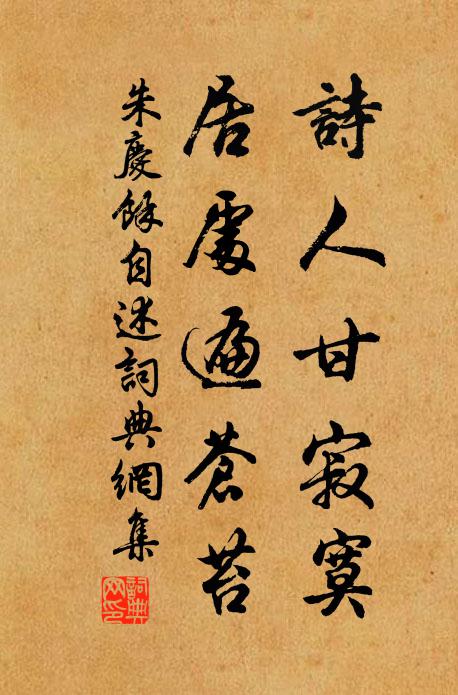 詩人甘寂寞
居處遍蒼苔
朱慶餘自述詞典網集
詞典網印